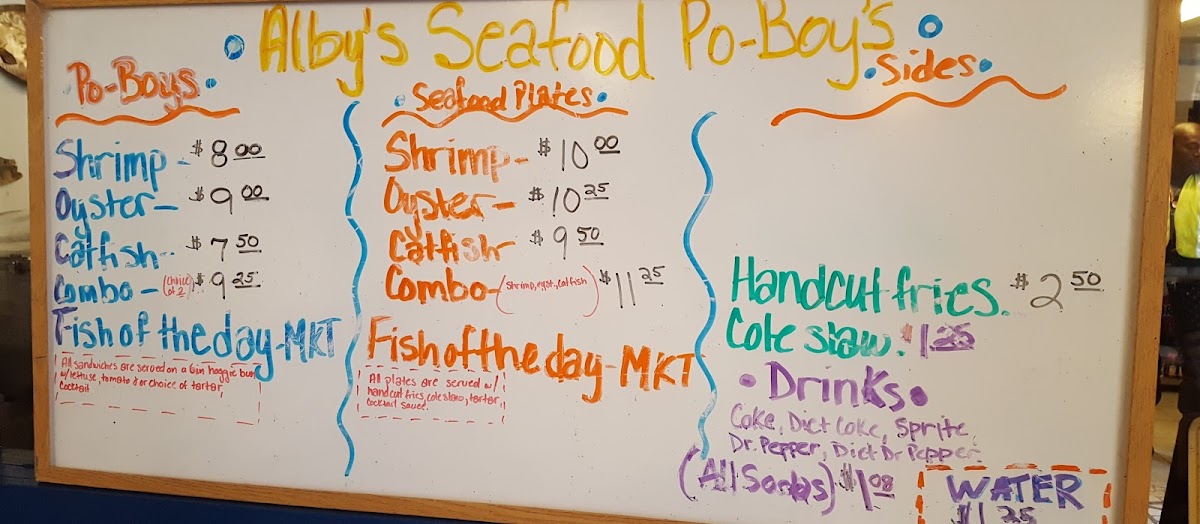 Alby's Seafood Po-Boy's
Po-Boys
Shrimp - $8.00
Oyster - $9.00
Catfish - $7.50
Combo - (choice of 2) $9.25
Fish of the day - MKT
All sandwiches are served on a 6in hoggie bun
w/ lettuce, tomato & choice of tarter,
cocktail
Seafood Plates
Shrimp - $10.00
Oyster - $10.25
Catfish - $9.50
Combo - (shrimp, oyst., catfish) $11.25
Fish of the day - MKT
All plates are served w/
handcut fries, cole slaw, tartar,
cocktail sauce.
Sides
Handcut fries. $2.50
Cole slaw. $1.25
Drinks
Coke, Diet Coke, Sprite
Dr. Pepper, Diet Dr Pepper
(All Sodas) $1.08
WATER
$1.25